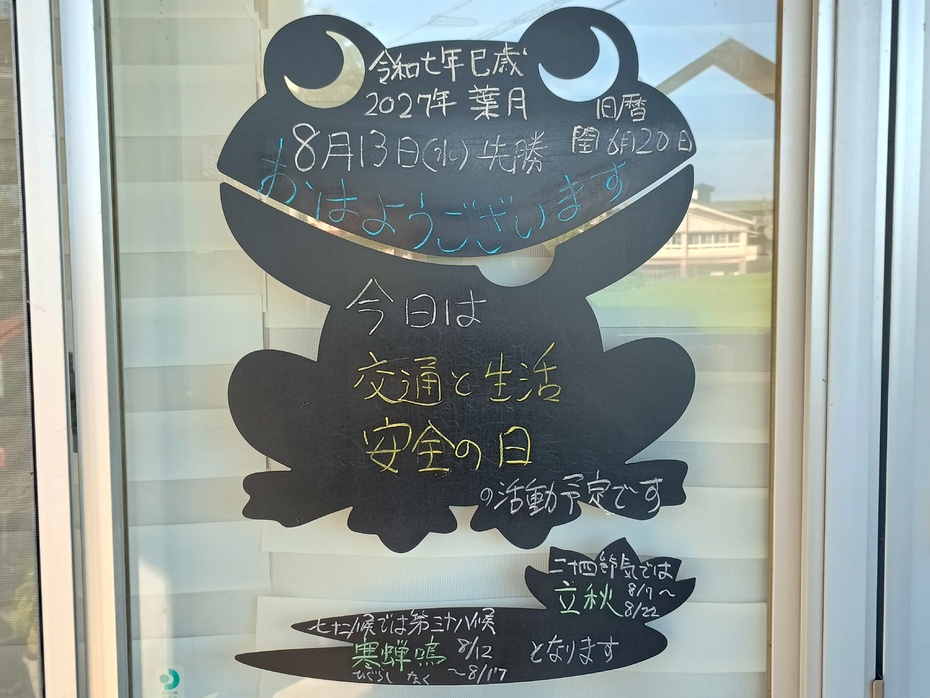 令和七年巳歳
2027年 葉月
旧暦
8月13日(水) 先勝
閏6月20日
おはようございます
今日は
交通と生活
安全の日
の活動予定です
二十四節気では
立秋 8/7〜
8/22
七十二候では第三十八候
寒蝉鳴 8/12
ひぐらし なく 〜8/17
となります